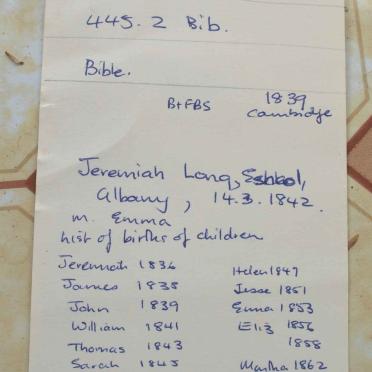 445. 2 Bib.
Bible.
B+FBS 1839
Cambridge
Jeremiah Long,
Albany, 14.3.1842.
m. Emma
List of births of children
Jeremiah 1836
James 1838
John 1839
William 1841
Thomas 1843
Sarah 1845
Helen 1847
Jesse 1851
Emma 1853
Eliz 1856
1858
Martha 1862